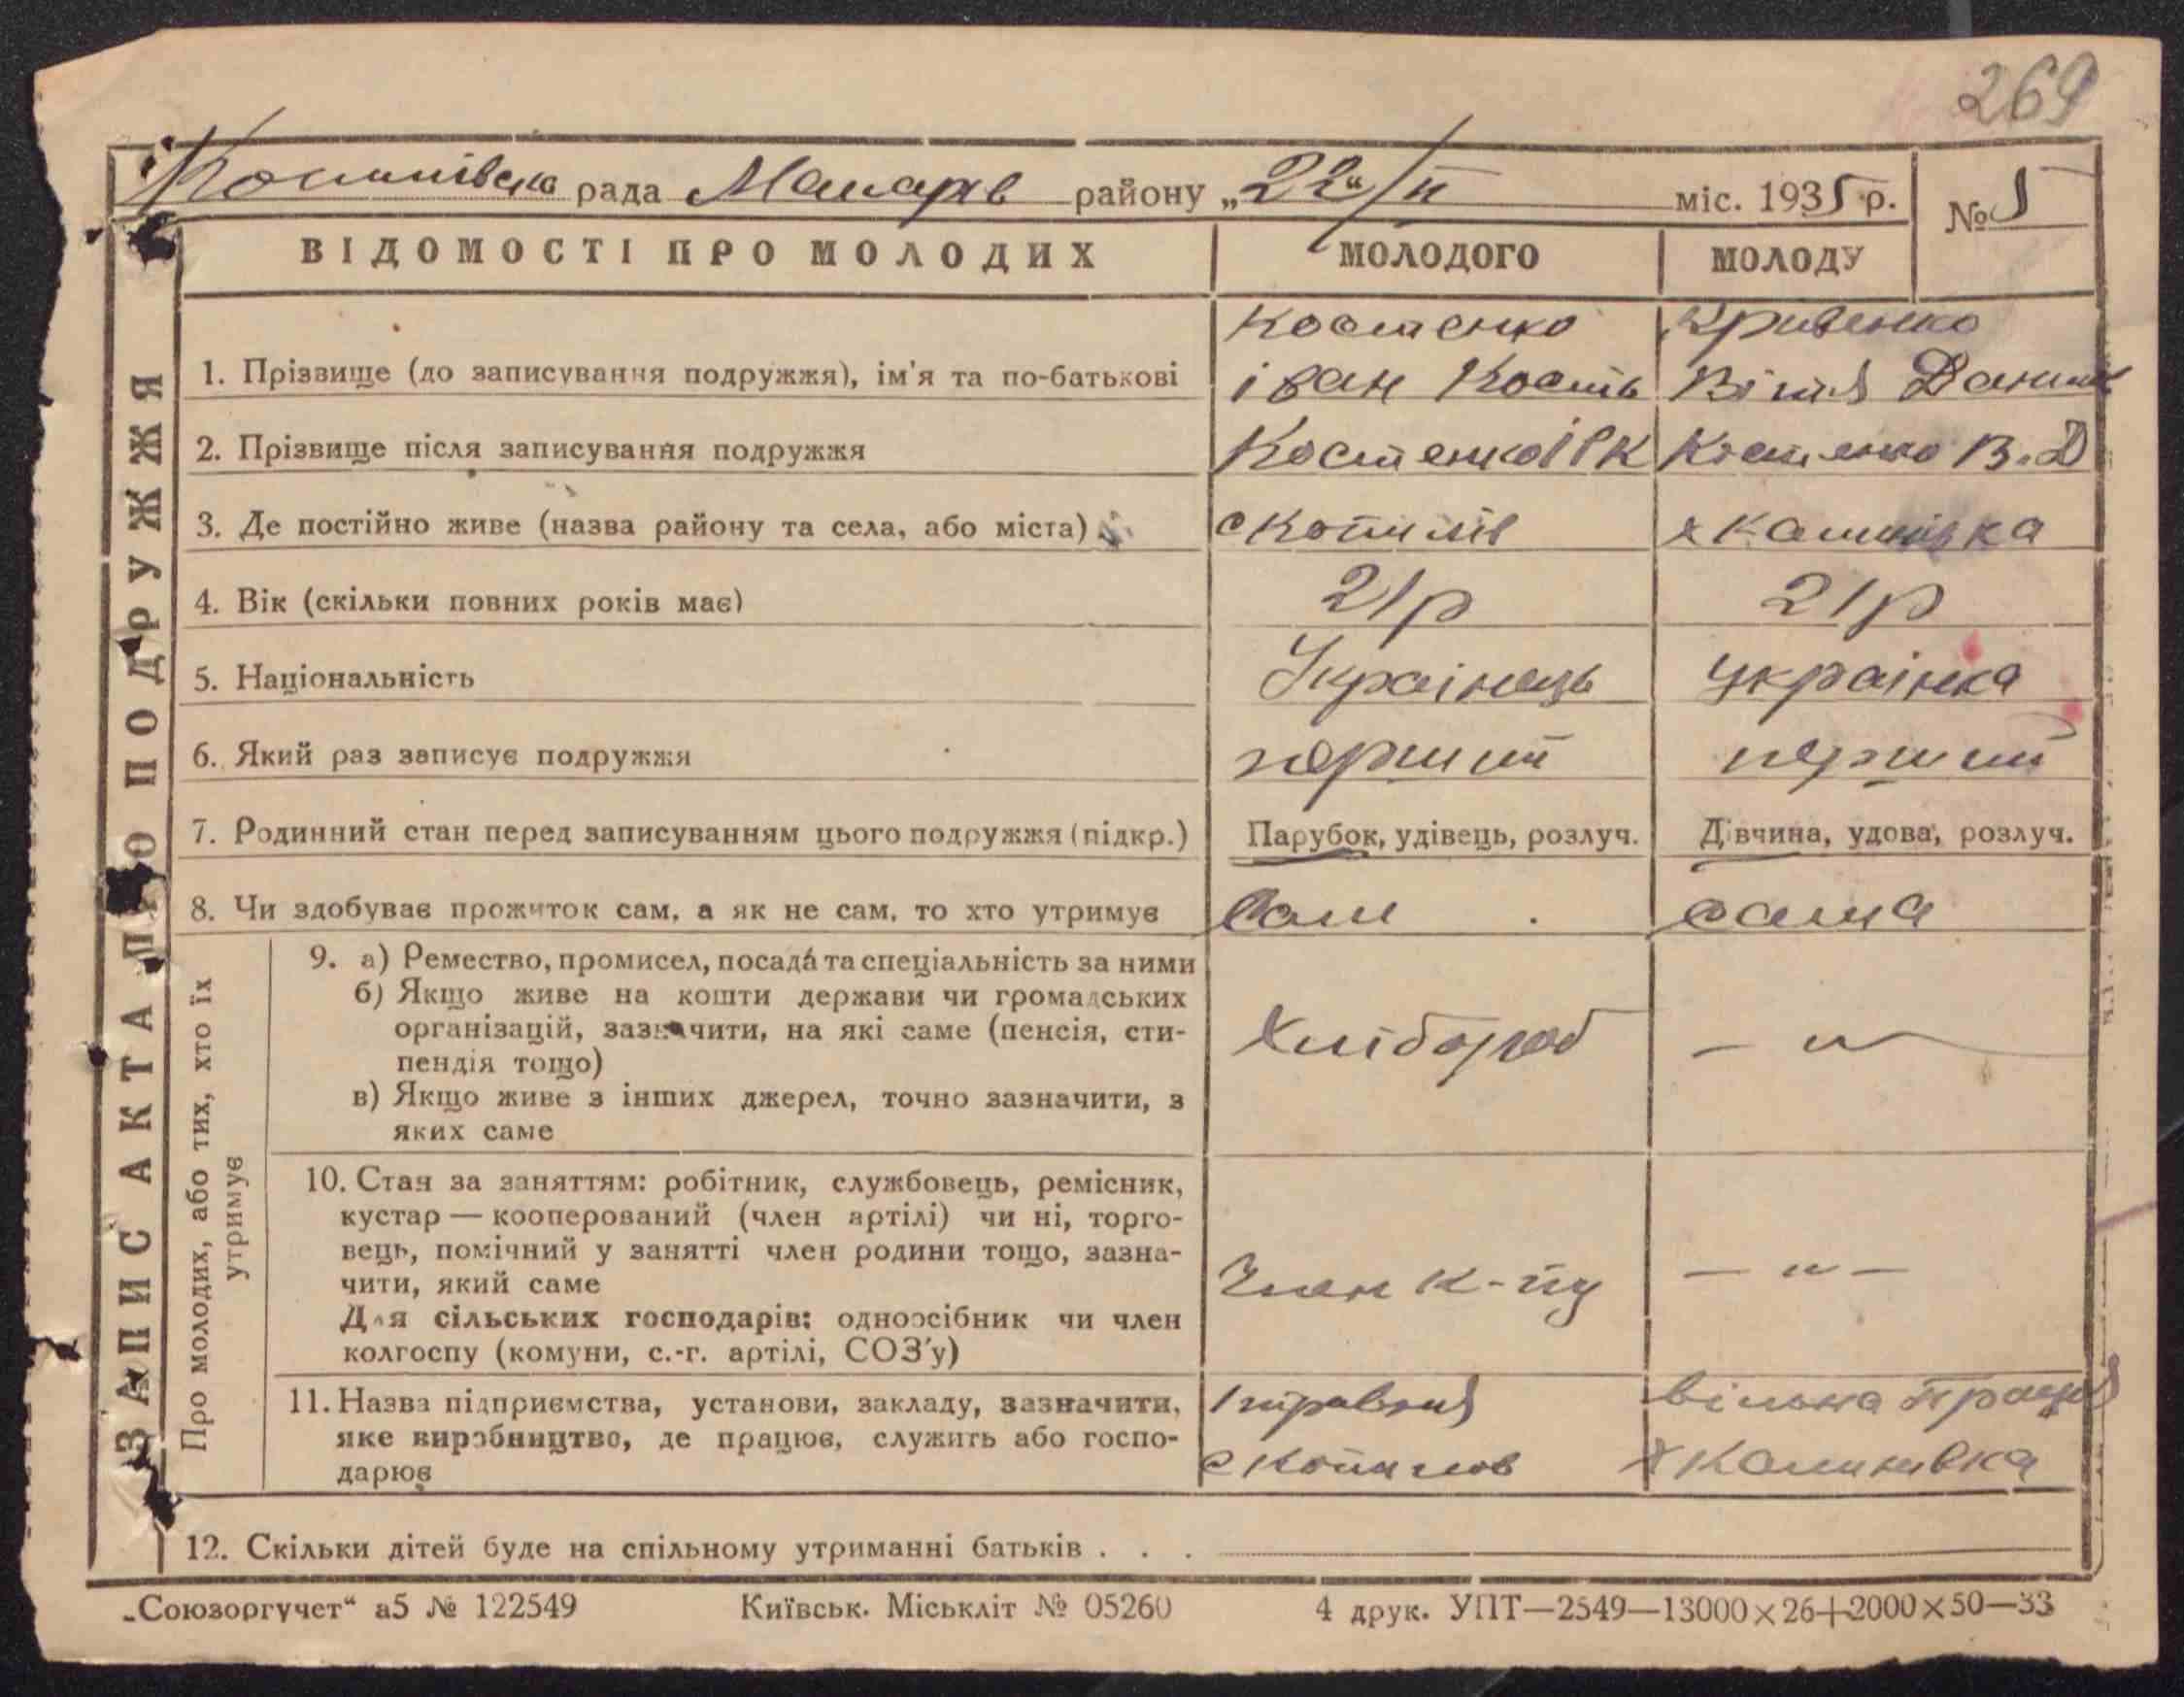 269
рада Макарів району „22“/II міс. 1935 р. № 5
ЗАПИС АКТА ПРО ПОДРУЖЖЯ
ВІДОМОСТІ ПРО МОЛОДИХ МОЛОДОГО МОЛОДУ
Костенко Кривенко
1. Прізвище (до записування подружжя), ім'я та по-батькові іван Кость
2. Прізвище після записування подружжя Костенко І К Костенко В. Д
3. Де постійно живе (назва району та села, або міста) с Копилів х Калинівка
4. Вік (скільки повних років має) 21 р 21 р
5. Національність Українець українка
6. Який раз записує подружжя перший перший
7. Родинний стан перед записуванням цього подружжя (підкр.) Парубок, удівець, розлуч. Дівчина, удова, розлуч.
8. Чи здобуває прожиток сам, а як не сам, то хто утримує Сам сама
Про молодих, або тих, хто їх
утримує
9. а) Ремество, промисел, посада та спеціальність за ними
б) Якщо живе на кошти держави чи громадських
організацій, зазначити, на які саме (пенсія, сти-
пендія тощо)
Хлібороб — „ —
в) Якщо живе з інших джерел, точно зазначити, з
яких саме
10. Стан за заняттям: робітник, службовець, ремісник,
кустар — кооперований (член артілі) чи ні, торго-
вець, помічний у занятті член родини тощо, зазна-
чити, який саме Член к-пу — „ —
Для сільських господарів: одноосібник чи член
колгоспу (комуни, с.-г. артілі, СОЗ'у)
11. Назва підприємства, установи, закладу, зазначити, вільна праця
яке виробництво, де працює, служить або госпо- с Копилов х Калинивка
дарює
12. Скільки дітей буде на спільному утриманні батьків . . .
„Союзоргучет“ а5 № 122549 Київськ. Міськліт № 05260 4 друк. УПТ—2549—13000×26+2000×50—33